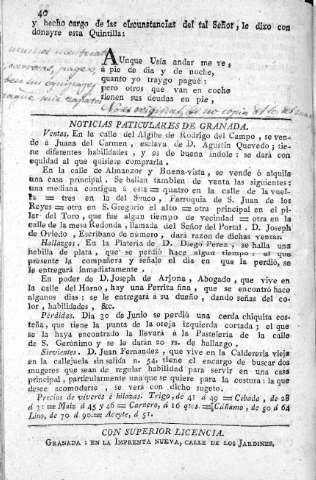 40
y hecho cargo de las circunstancias del tal Señor, le dixo con
donayre esta Quintilla:
AUnque Usía andar me ve,
á pie de dia y de noche,
quanto yo traygo pagué:
pero otros que van en coche
tienen sus deudas en pie,
NOTICIAS PATICULARES DE GRANADA.
Ventas. En la calle del Algibe de Rodrigo del Campo, se ven-
de á Juana del Carmen, esclava de D. Agustin Quevedo; tie-
ne diferentes habilidades, y es de buena indole: se dará con
equidad al que quisiere comprarla.
En la calle de Almanzor y Buena-vista, se vende ó alquila
una casa principal. Se hallan tambien de venta las siguientes:
una mediana contigua á esta = quatro en la calle de la vuel-
ta = tres en la del Sauco, Parroquia de S. Juan de los
Reyes = otra en S. Gregorio el alto = otra principal en el pi-
lar del Toro, que fue algun tiempo de vecindad = otra en la
calle de la mesa Redonda, llamada del Señor del Portal. D. Joseph
de Oviedo, Escribano de número, dará razon de dichas ventas.
Hallazgos. En la Plateria de D. Diego Perez, se halla una
hebilla de plata, que se perdió hace algun tiempo: al que
presente la compañera y señale el dia en que la perdió, se
le entregará inmediatamente.
En poder de D. Joseph de Arjona, Abogado, que vive en
la calle del Horno, hay una Perrita fina, que se encontró hace
algunos dias: se le entregará a su dueño, dando señas del co-
lor, habilidades, &c.
Pérdidas. Dia 30 de Junio se perdió una cerda chiquita cos-
teña, que tiene la punta de la oreja izquierda cortada; el que
se la haya encontrado la llevará á la Pasteleria de la calle
de S. Gerónimo y se le darán 20 rs. de hallazgo.
Sirvientes. D. Juan Fernandez, que vive en la Calderería vieja
en la callejuela sin salida n. 54. tiene el encargo de buscar dos
mugeres que sean de regular habilidad para servir en una casa
principal, particularmente una que se quiere para la costura: la que
desee acomodarse, se verá con dicho sugeto.
Precios de víveres é hilazas. Trigo, de 41 á 49 = Cebada, de 28
á 31 = Maiz á 45 y 46 = Carnero, á 16 qtos. = Cáñamo, de 50 á 64
Lino, de 70 á 90 = Aceyte, á 51.
CON SUPERIOR LICENCIA.
GRANADA: EN LA IMPRENTA NUEVA, CALLE DE LOS JARDINES,